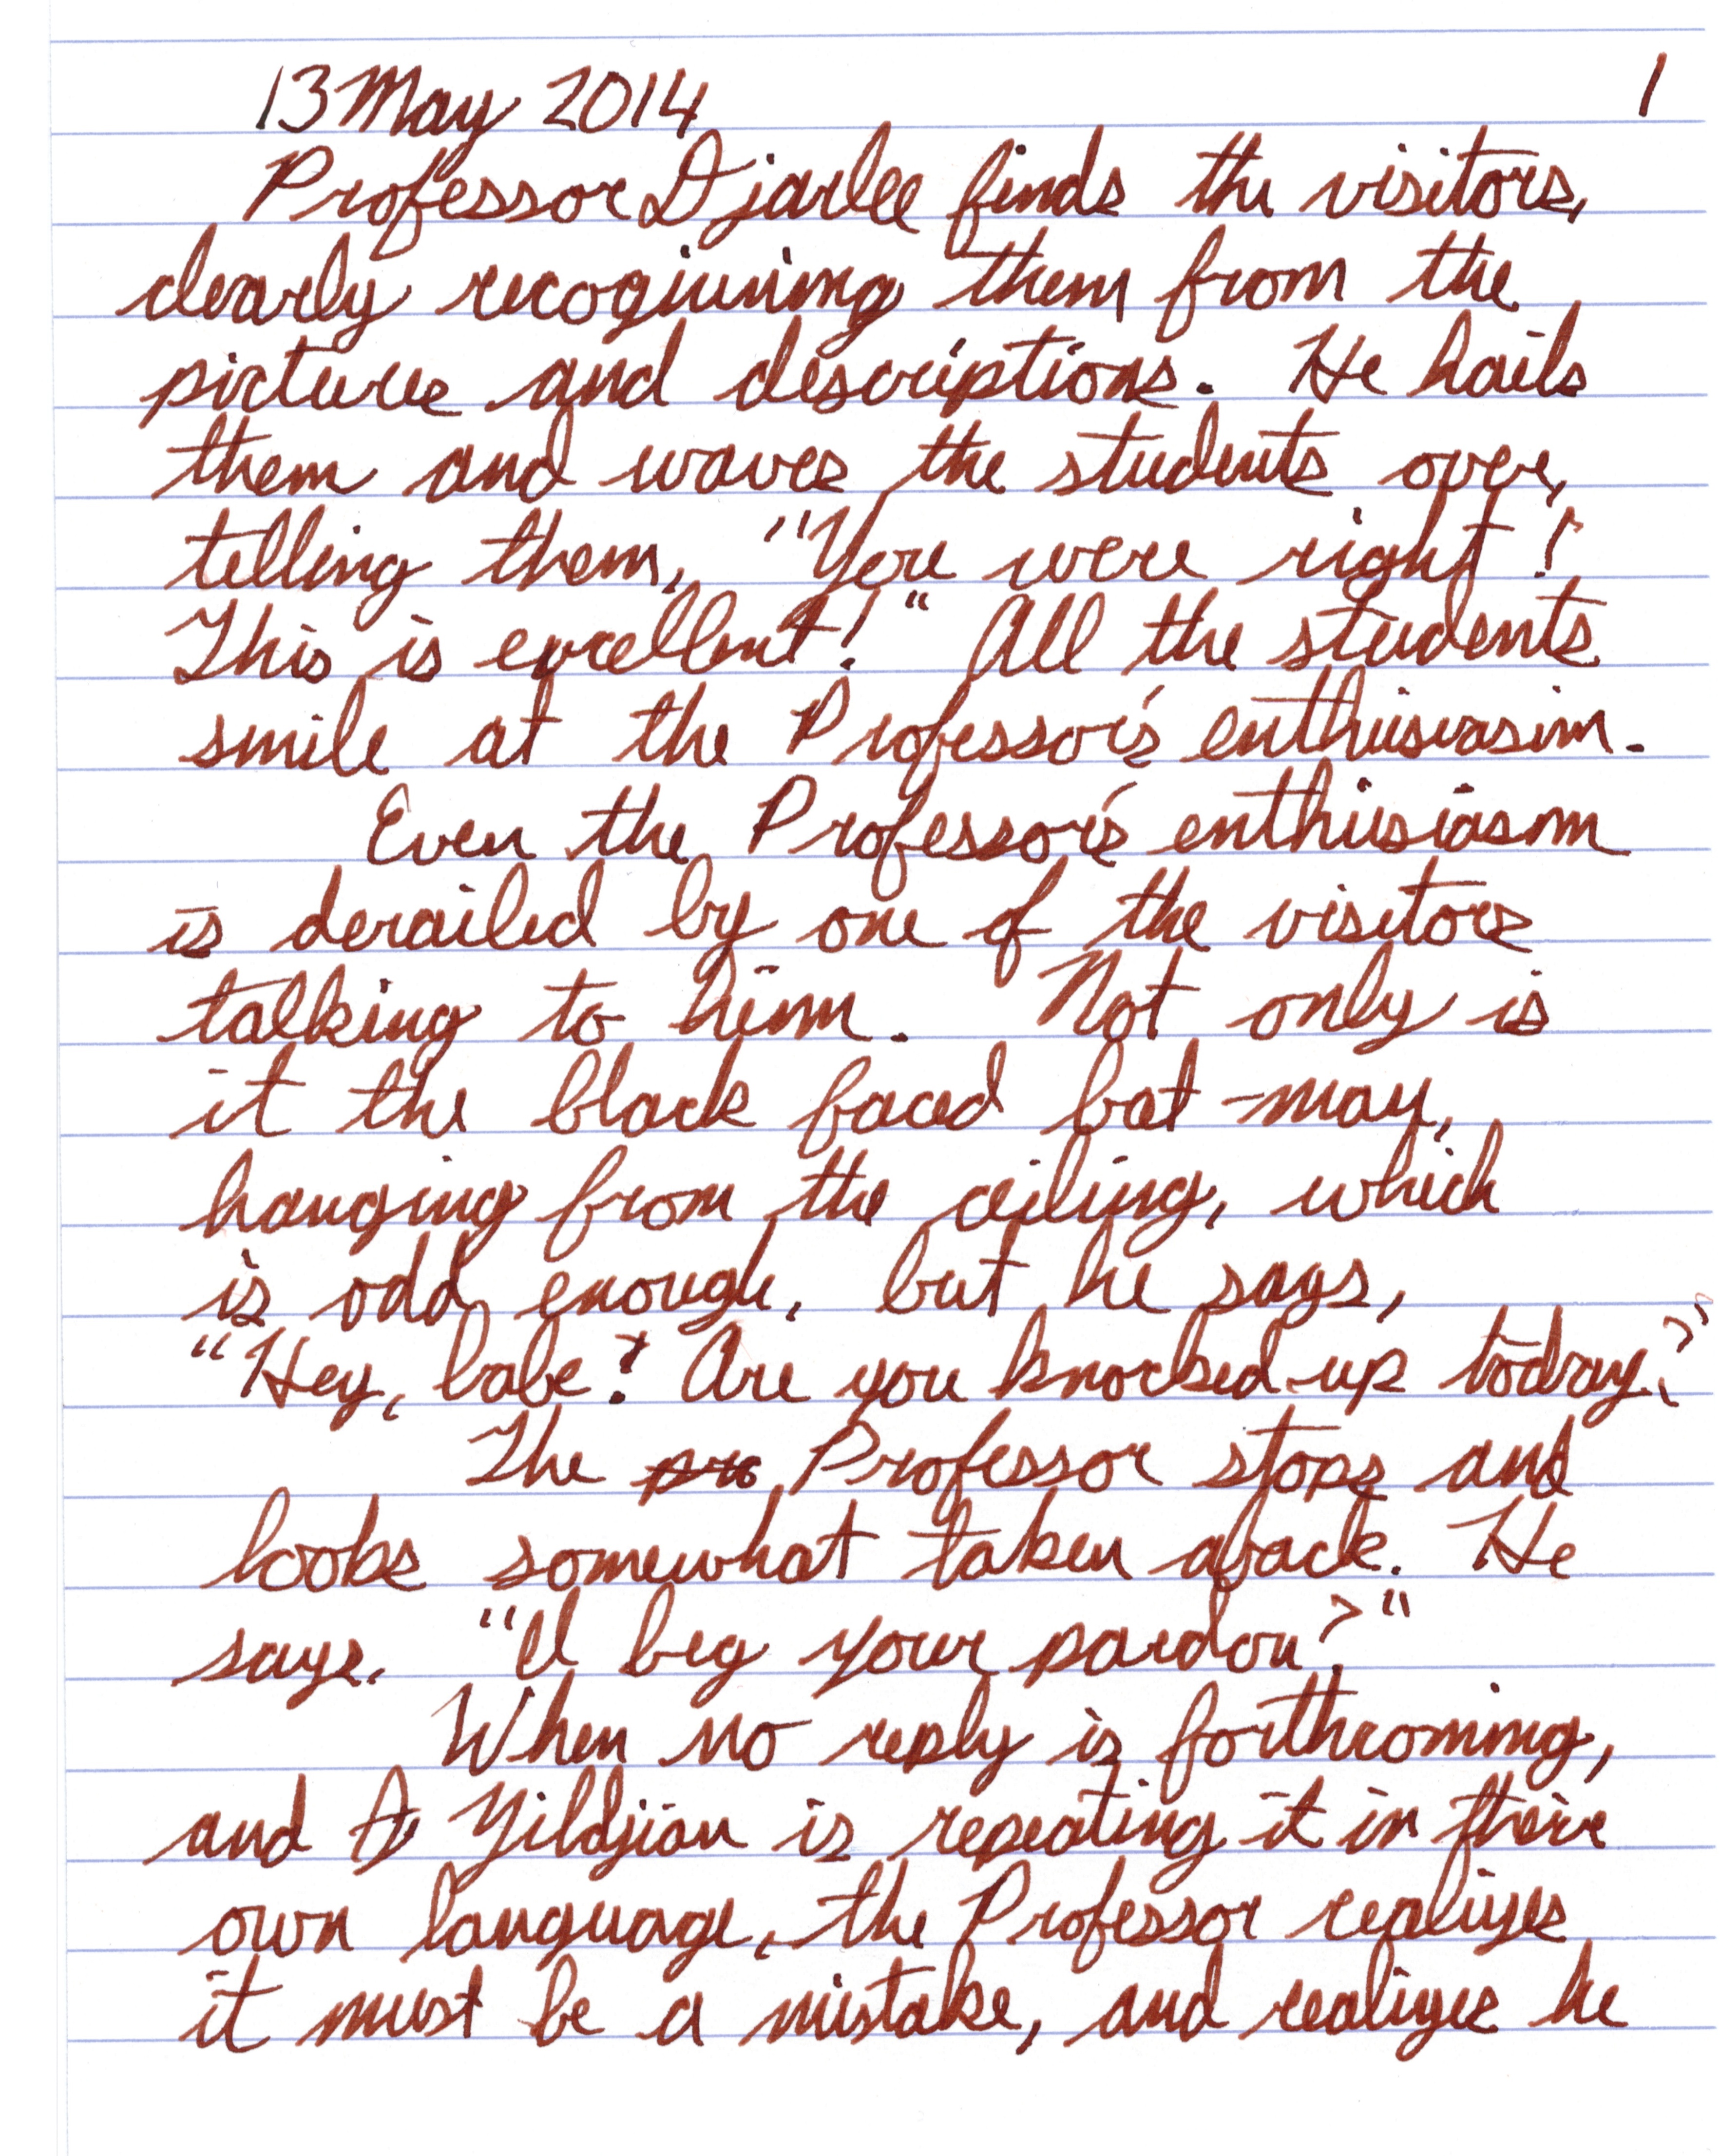 13 May 2014 1
Professor Djarlee finds the visitors,
clearly recogining them from the
picture and descriptions. He hails
them and waves the students over,
telling them, "You were right!
This is excellent!" All the students
smile at the Professor's enthusiasim.
Even the Professor's enthusiasm
is derailed by one of the visitors
talking to him. Not only is
it the black faced bat-man,
hanging from the ceiling, which
is odd enough, but he says,
"Hey, babe! Are you knocked-up today?"
The Professor stops and
looks somewhat taken aback. He
says. "I beg your pardon?"
When no reply is forthcoming,
and Yildjian is repeating it in their
own language, the Professor realizes
it must be a mistake, and realizes he